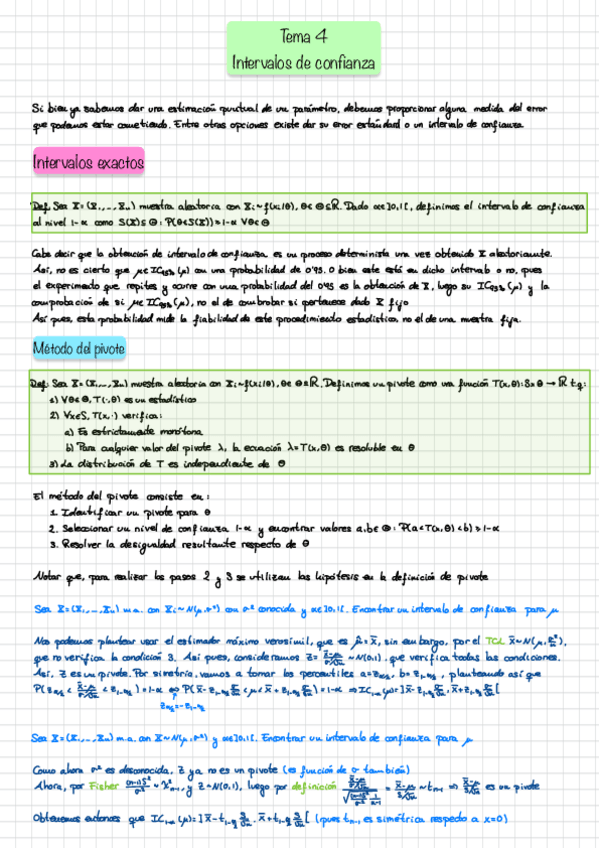 Tema 4
Intervalos de confianza
Si bien ya sabemos dar una estimación puntual de un parámetro, debemos proporcionar alguna medida del error
que podamos estar cometiendo. Entre otras opciones existe dar su error estándard o un intervalo de confianza
Intervalos exactos
Def: Sea X=(X₁,...,Xₙ) muestra aleatoria con Xᵢ~f(xᵢ|θ), θ∈Θ⊆ℝ. Dado α∈]0,1[, definimos el intervalo de confianza
al nivel 1-α como S(X)⊆Θ: P(θ∈S(X))≥1-α ∀θ∈Θ
Cabe decir que la obtención de intervalo de confianza es un proceso determinista una vez obtenido X aleatoriamente.
Así, no es cierto que μ∈IC₉₅%(μ) con una probabilidad de 0'95. O bien este está en dicho intervalo o no, pues
el experimento que repites y ocurre con una probabilidad del 0'95 es la obtención de X, luego su IC₉₅%(μ) y la
comprobación de si μ∈IC₉₅%(μ), no el de comprobar si pertenece dado X fijo
Así pues, esta probabilidad mide la fiabilidad de este procedimiento estadístico, no el de una muestra fija.
Método del pivote
Def: Sea X=(X₁,...,Xₙ) muestra aleatoria con Xᵢ~f(xᵢ|θ), θ∈Θ⊆ℝ. Definimos un pivote como una función T(x,θ):S×Θ→ℝ t.q.:
1) ∀θ∈Θ, T(·,θ) es un estadístico
2) ∀x∈S, T(x,·) verifica:
a) Es estrictamente monótona
b) Para cualquier valor del pivote λ, la ecuación λ=T(x,θ) es resoluble en θ
3) La distribución de T es independiente de θ
El método del pivote consiste en:
1. Identificar un pivote para θ
2. Seleccionar un nivel de confianza 1-α y encontrar valores a,b∈Θ: P(a<T(x,θ)<b)≥1-α
3. Resolver la desigualdad resultante respecto de θ
Notar que, para realizar los pasos 2 y 3 se utilizan las hipótesis en la definición de pivote
Sea X=(X₁,...,Xₙ) m.a. con Xᵢ~N(μ,σ²) con σ² conocida y α∈]0,1[. Encontrar un intervalo de confianza para μ
Nos podemos plantear usar el estimador máximo verosímil, que es μ̂=x̄, sin embargo, por el TCL x̄~N(μ,σ²/n),
que no verifica la condición 3. Así pues, consideramos Z=(x̄-μ)/(σ/√n)~N(0,1), que verifica todas las condiciones.
Así, Z es un pivote. Por simetría, vamos a tomar los percentiles a=z_α/2, b=z_1-α/2, planteando así que
P(z_α/2<(x̄-μ)/(σ/√n)<z_1-α/2)=1-α ⇔ P(x̄-z_1-α/2 σ/√n<μ<x̄+z_1-α/2 σ/√n)=1-α ⇒ IC_1-α(μ)=]x̄-z_1-α/2 σ/√n, x̄+z_1-α/2 σ/√n[
z_α/2=-z_1-α/2
Sea X=(X₁,...,Xₙ) m.a. con X~N(μ,σ²) y α∈]0,1[. Encontrar un intervalo de confianza para μ
Como ahora σ² es desconocida, Z ya no es un pivote (es función de σ también)
Ahora, por Fisher (n-1)S²/σ²~χ²ₙ₋₁, y Z~N(0,1), luego por definición ((x̄-μ)/(σ/√n))/√((n-1)S²/σ² · 1/(n-1)) = (x̄-μ)/(S/√n)~tₙ₋₁ ⇒ (x̄-μ)/(S/√n) es un pivote
Obtenemos entonces que IC_1-α(μ)=]x̄-t_1-α/2 S/√n, x̄+t_1-α/2 S/√n[ (pues tₙ₋₁ es simétrica respecto a x=0)